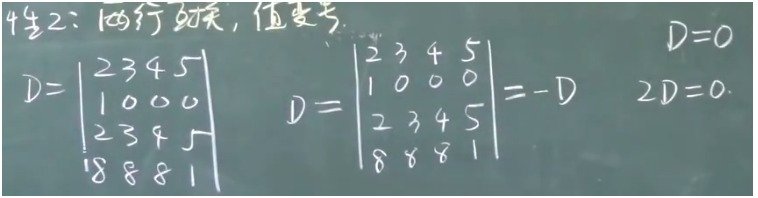 性2：两行互换，值变号.
D=
2 3 4 5
1 0 0 0
2 3 4 5
8 8 8 1
D=
2 3 4 5
1 0 0 0
2 3 4 5
8 8 8 1
=-D
D=0
2D=0.